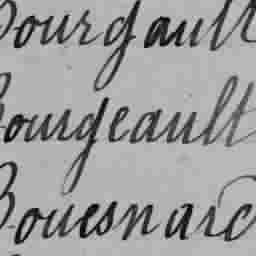 Bourgault
Bourgeault
Bouesnard